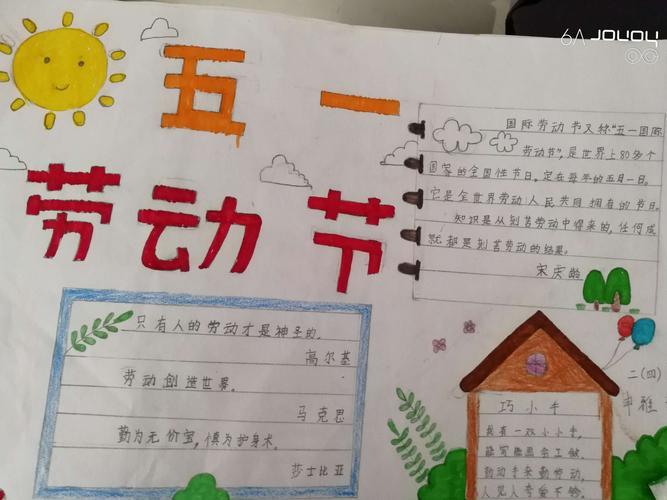 五一
劳动节
国际劳动节又称"五一国际
劳动节",是世界上80多个
国家的全国性节日。定在每年的五月一日。
它是全世界劳动人民共同拥有的节日。
知识是从刻苦劳动中得来的,任何成
就都是刻苦劳动的结果。
宋庆龄
只有人的劳动才是神圣的.
高尔基
劳动创造世界。
马克思
勤为无价宝,慎为护身术。
莎士比亚
二(四)
巧小手
我有一双小小手,
勤动手来勤劳动,
人见人夸
6A JOYOY